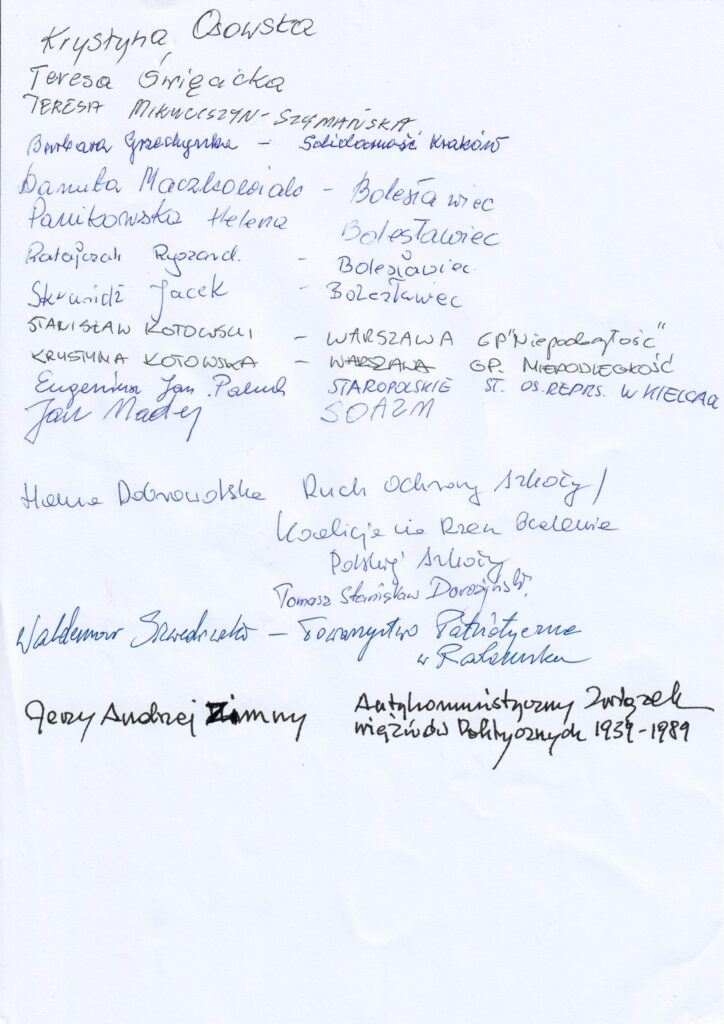 Krystyna Osowska
Teresa Święcicka
TERESA MIKULISZYN-SZYMAŃSKA
Barbara Grzechynka - Solidarność Kraków
Danuta Maczkowiak - Bolesławiec
Panikowska Helena Bolesławiec
Ratajczak Ryszard. - Bolesławiec
Jacek - Bolesławiec
STANISŁAW KOTOWSKI - WARSZAWA GP"Niepodległość"
KRYSTYNA KOTOWSKA - WARSZAWA GP. NIEPODLEGŁOŚĆ
Eugeniusz Jan Paluch STAROPOLSKIE ST. OS. REPRS. W KIELCACH
Jan Madej SOAZM
Hanna Dobrowolska Ruch Ochrony Szkoły /
Koalicja na Rzecz Ocalenia
Polskiej Szkoły
Tomasz Stanisław Dorożyński.
Waldemar - Towarzystwo Patriotyczne
w
Jerzy Andrzej Zimny Antykomunistyczny Związek
więźniów Politycznych 1939-1989